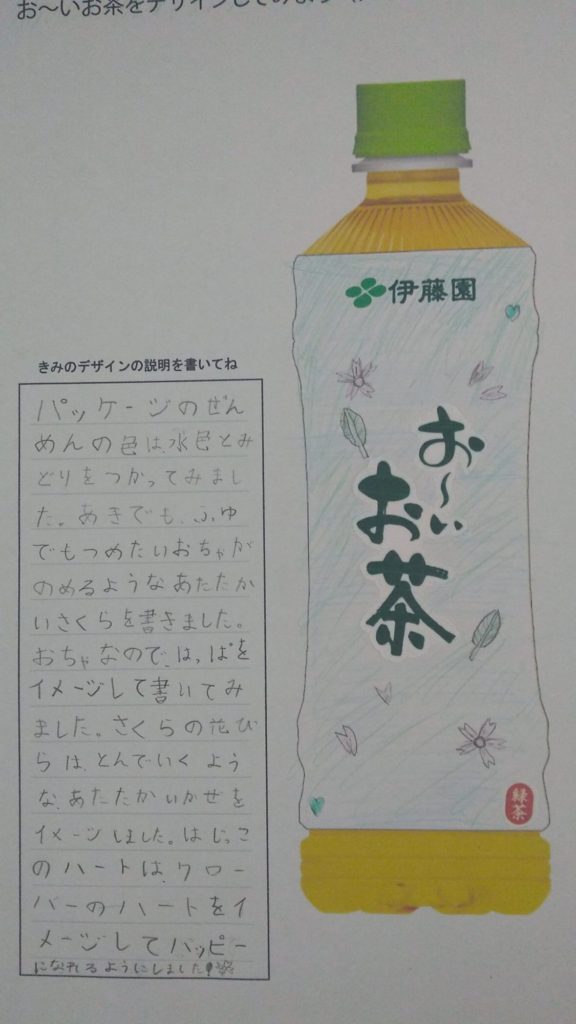 お〜いお茶をデザインしてみよう
伊藤園
お〜い
お茶
緑茶
きみのデザインの説明を書いてね
パッケージのぜん
めんの色は、水色とみ
どりをつかってみまし
た。あきでも、ふゆ
でもつめたいおちゃが
のめるようなあたたか
いさくらを書きました。
おちゃなので、はっぱを
イメージして書いてみ
ました。さくらの花び
らは、とんでいくよう
な、あたたかいかぜを
イメージしました。はじっこ
のハートは、クロー
バーのハートをイ
メージしてハッピー
になれるようにしました!